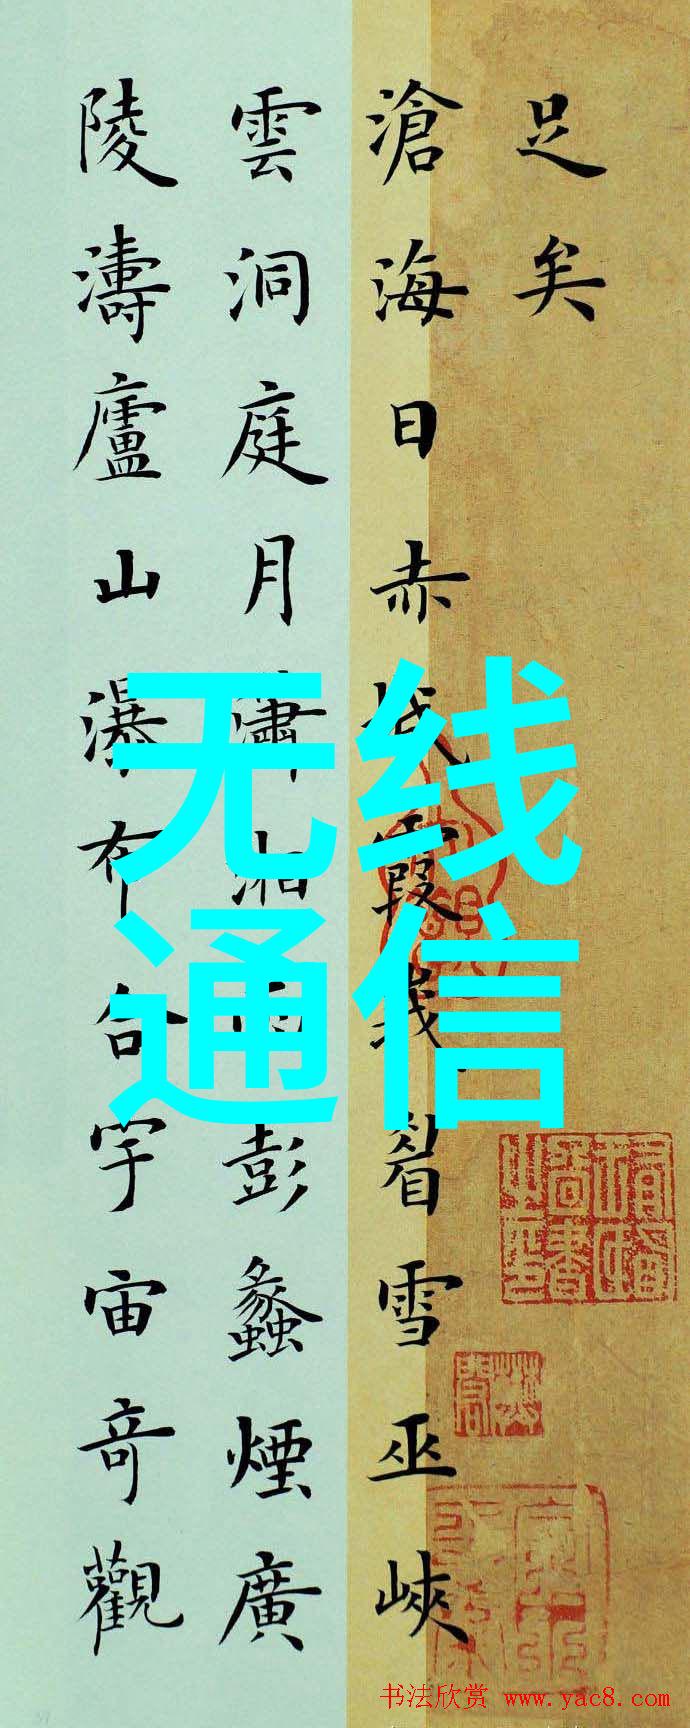 足矣
滄海日赤城霞峩眉雪巫峽
雲洞庭月瀟湘雨彭蠡煙廣
陵濤廬山瀑布合宇宙奇觀
无线
通信
书法欣赏 www.yac8.com